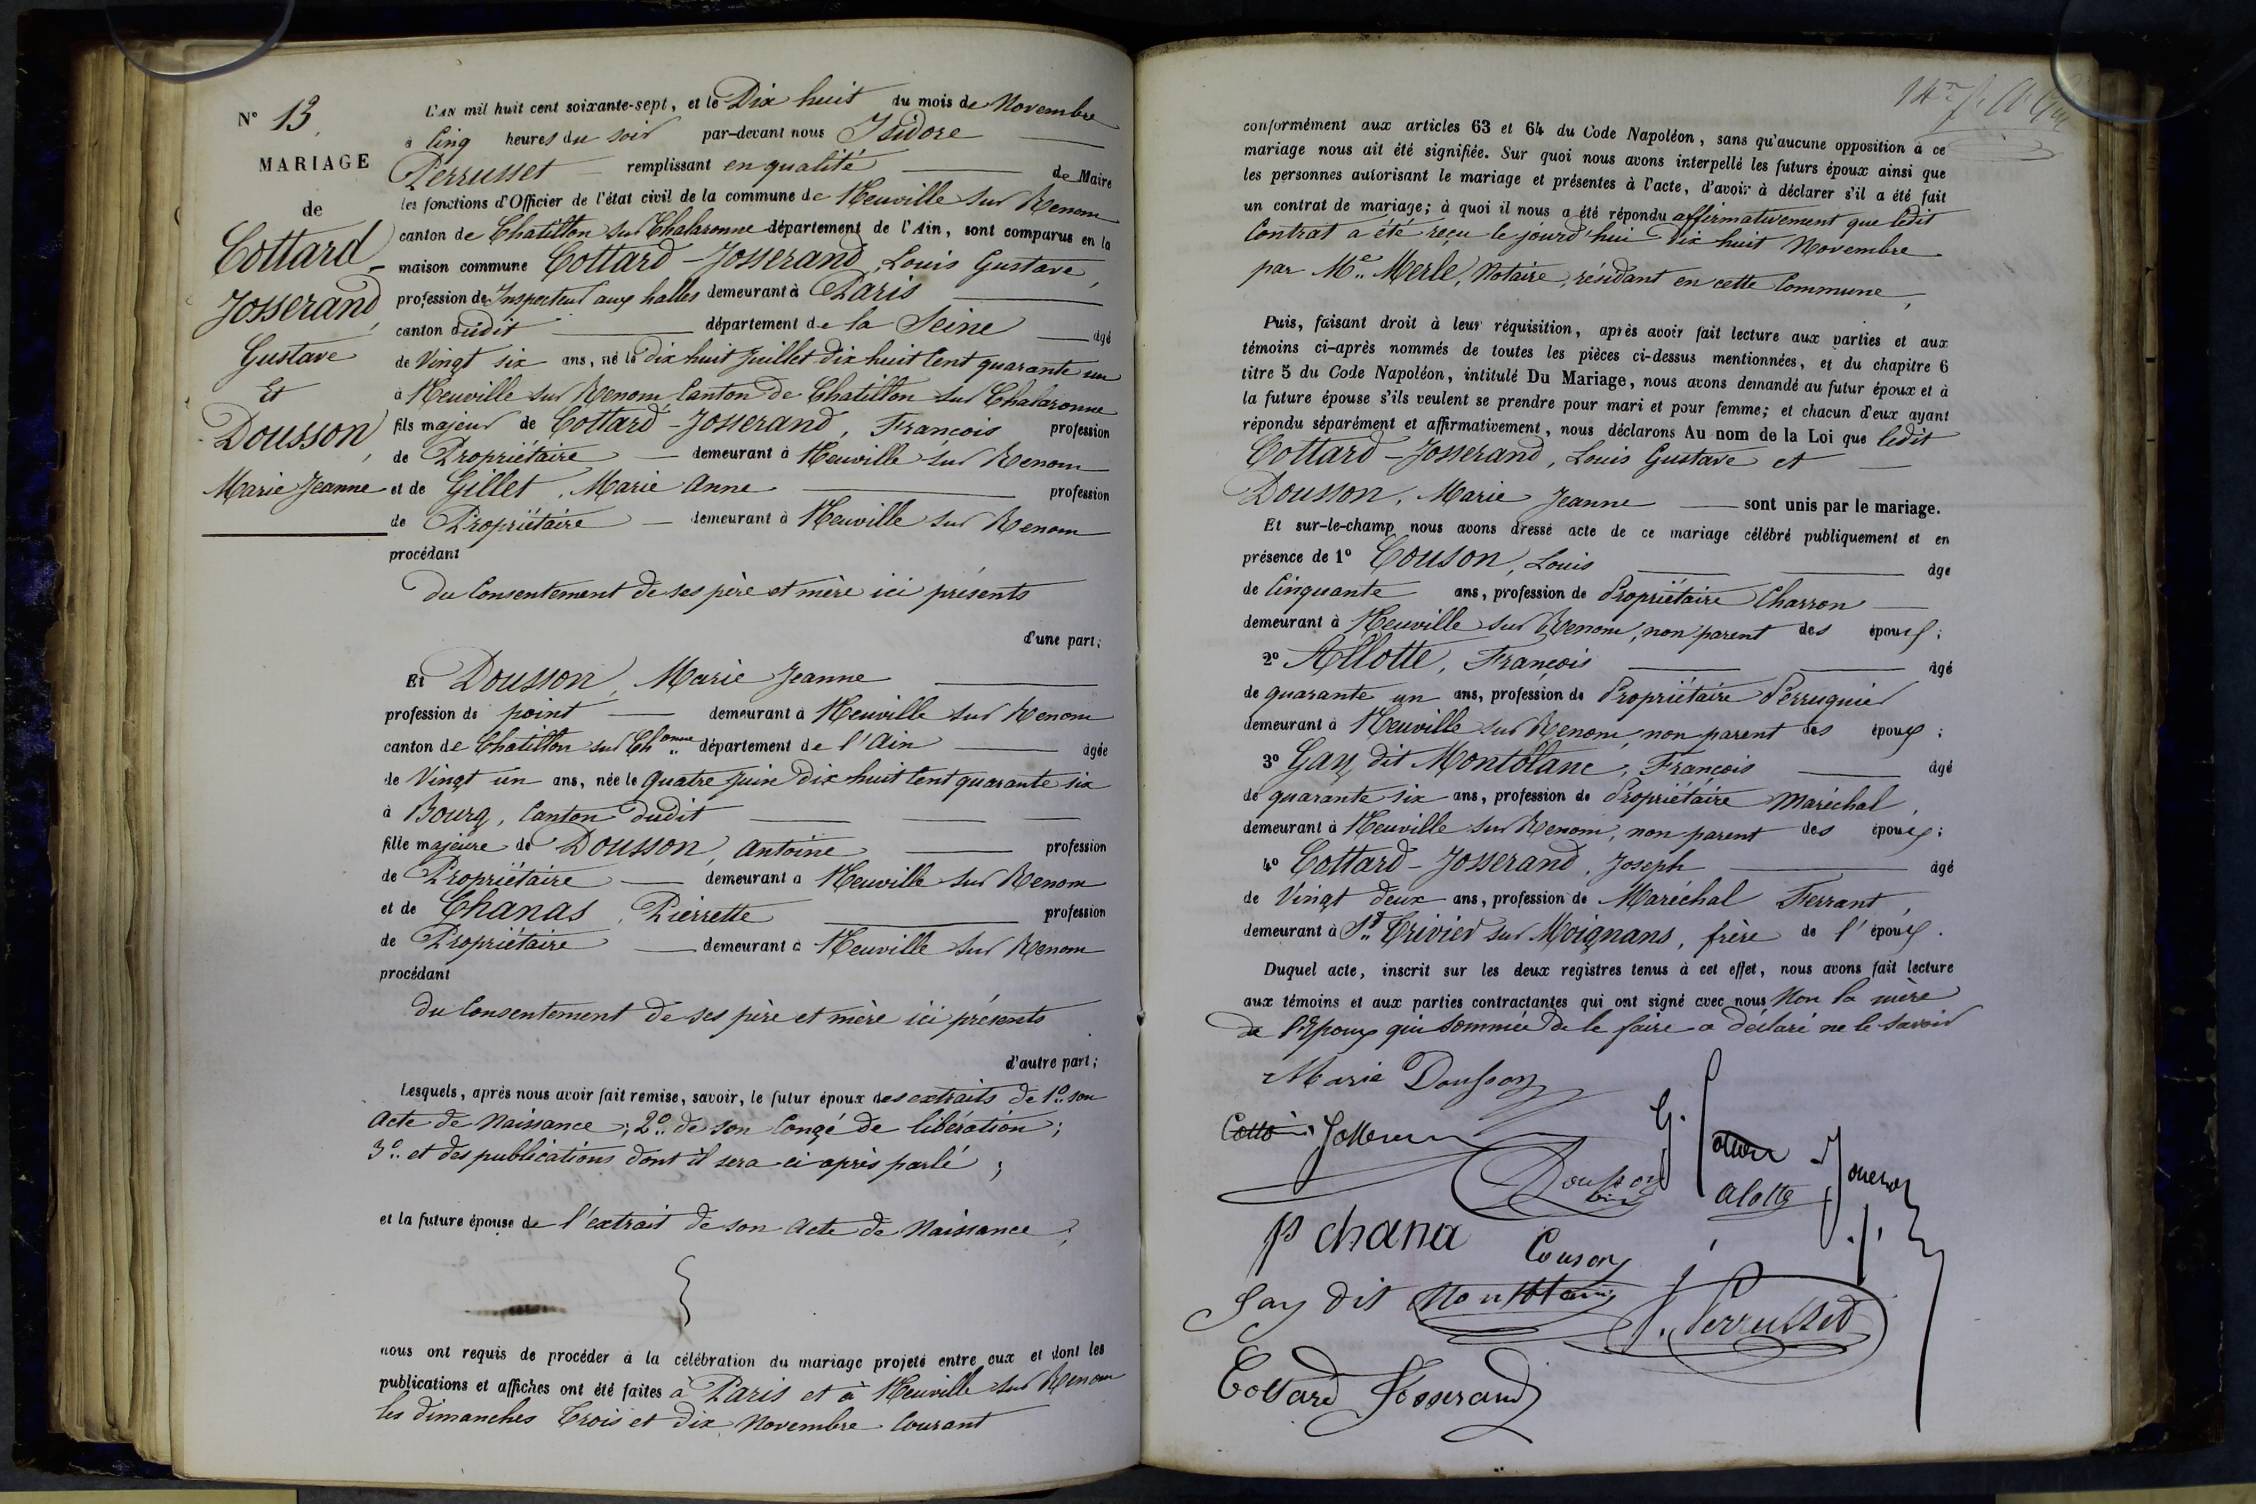 N° 13.
MARIAGE
de
Cottard-
Josserand,
Gustave
Et
Dousson,
Marie Jeanne
L'AN mil huit cent soixante-sept, et le Dix huit du mois de Novembre
à Cinq heures du soir par-devant nous Isidore
Perrusset remplissant en qualité de Maire
les fonctions d'Officier de l'état civil de la commune de Neuville sur Renom
canton de Chatillon sur Chalaronne département de l'Ain, sont comparus en la
maison commune Cottard-Josserand, Louis Gustave,
profession de Inspecteur aux halles demeurant à Paris
canton dudit département de la Seine âgé
de Vingt six ans, né le dix huit Juillet dix huit Cent quarante un
à Neuville sur Renom Canton de Chatillon sur Chalaronne
fils majeur de Cottard-Josserand, Francois profession
de Propriétaire demeurant à Neuville sur Renom
et de Gillet, Marie Anne profession
de Propriétaire demeurant à Neuville sur Renom
procédant
du Consentement de ses père et mère ici présents
d'une part;
Et Dousson, Marie Jeanne
profession de point demeurant à Neuville sur Renom
canton de Chatillon sur Ch.onne département de l'Ain âgée
de Vingt un ans, née le quatre Juin Dix huit Cent quarante six
à Bourg, Canton dudit
fille majeure de Dousson, Antoine profession
de Propriétaire demeurant à Neuville sur Renom
et de Chanas, Pierrette profession
de Propriétaire demeurant à Neuville sur Renom
procédant
du Consentement de ses père et mère ici présents
d'autre part;
Lesquels, après nous avoir fait remise, savoir, le futur époux des extraits de 1° son
Acte de Naissance; 2° de son Congé de libération;
3° et des publications dont il sera ci après parlé;
et la future épouse de l'extrait de son Acte de Naissance;
nous ont requis de procéder à la célébration du mariage projeté entre eux et dont les
publications et affiches ont été faites à Paris et à Neuville sur Renom
les dimanches Trois et dix Novembre Courant
conformément aux articles 63 et 64 du Code Napoléon, sans qu'aucune opposition à ce
mariage nous ait été signifiée. Sur quoi nous avons interpellé les futurs époux ainsi que
les personnes autorisant le mariage et présentes à l'acte, d'avoir à déclarer s'il a été fait
un contrat de mariage; à quoi il nous a été répondu affirmativement que ledit
Contrat a été reçu le jourd'hui dix huit Novembre
par Me Merle, Notaire, résidant en cette Commune,
Puis, faisant droit à leur réquisition, après avoir fait lecture aux parties et aux
témoins ci-après nommés de toutes les pièces ci-dessus mentionnées, et du chapitre 6
titre 5 du Code Napoléon, intitulé Du Mariage, nous avons demandé au futur époux et à
la future épouse s'ils veulent se prendre pour mari et pour femme; et chacun d'eux ayant
répondu séparément et affirmativement, nous déclarons Au nom de la Loi que ledit
Cottard-Josserand, Louis Gustave et
Dousson, Marie Jeanne sont unis par le mariage.
Et sur-le-champ nous avons dressé acte de ce mariage célébré publiquement et en
présence de 1° Couson, Louis âgé
de Cinquante ans, profession de Propriétaire Charron
demeurant à Neuville sur Renom, non parent des époux;
2° Allotte, François âgé
de quarante un ans, profession de Propriétaire Perruquier
demeurant à Neuville sur Renom, non parent des époux;
3° Gay dit Montblanc, François âgé
de quarante six ans, profession de Propriétaire Maréchal,
demeurant à Neuville sur Renom, non parent des époux;
4° Cottard-Josserand, Joseph âgé
de Vingt deux ans, profession de Maréchal Ferrant,
demeurant à St Trivier sur Moignans, frère de l'époux.
Duquel acte, inscrit sur les deux registres tenus à cet effet, nous avons fait lecture
aux témoins et aux parties contractantes qui ont signé avec nous Non la mère
de l'Epoux qui sommée de le faire a déclaré ne le savoir
Marie Dousson
Dousson
alotte
p chana
Couson
Gay dit Montblanc
Perrusset
Cottard Josserand